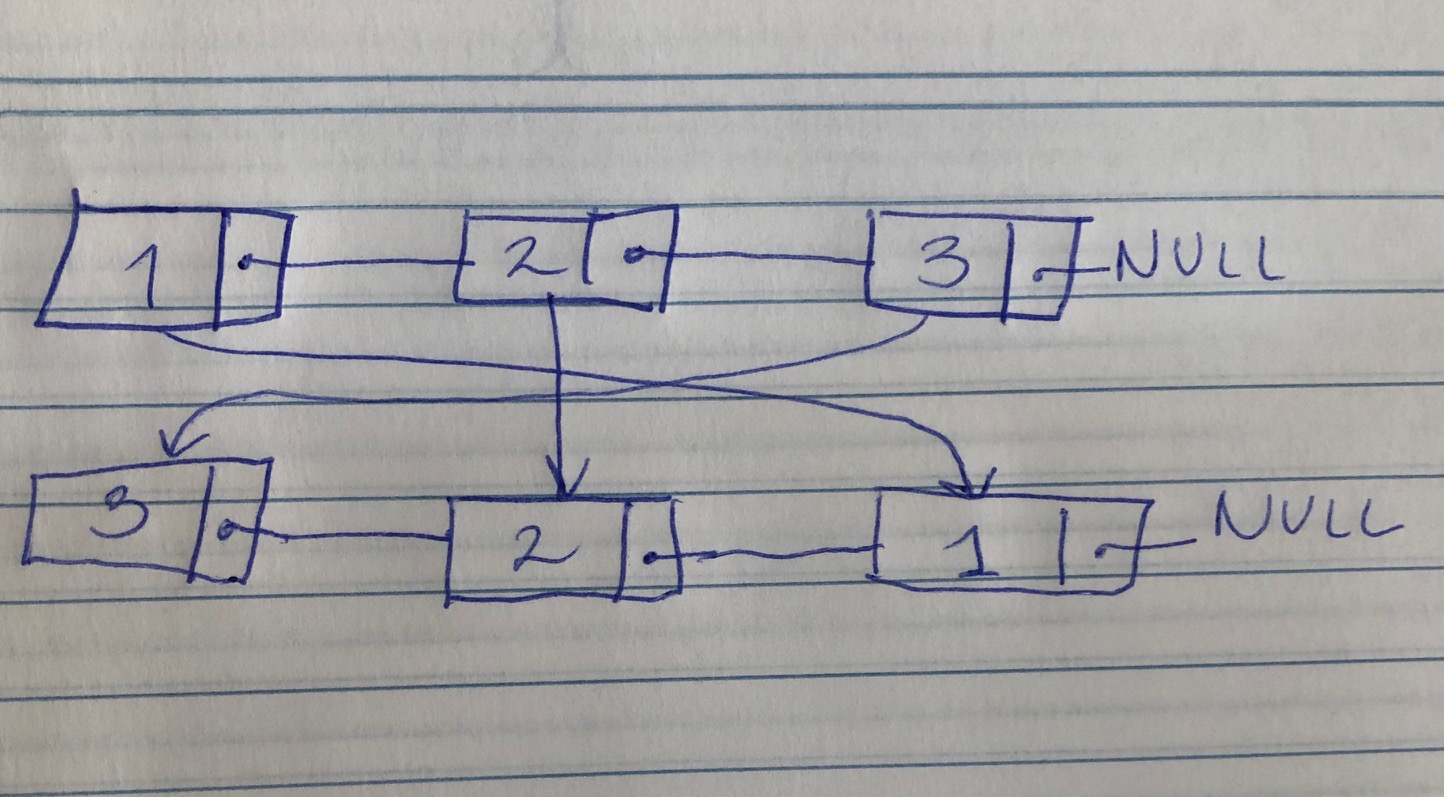 1 2 3 NULL
3 2 1 NULL